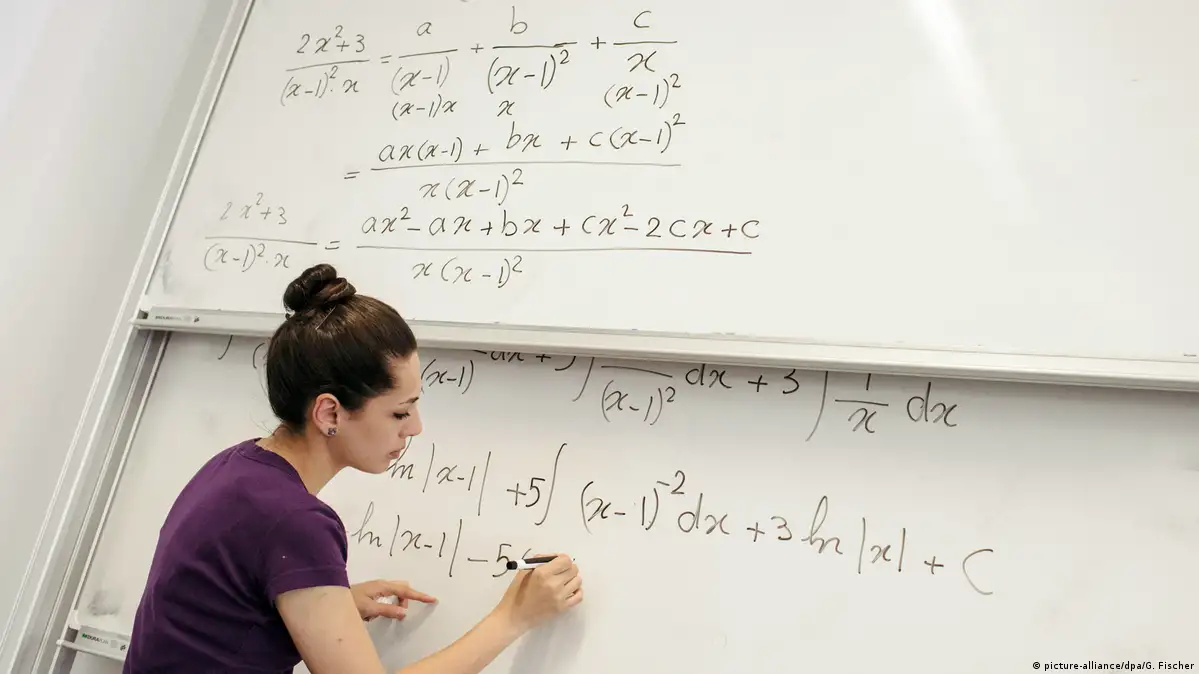 2x²+3 / (x-1)²·x = a / (x-1) + b / (x-1)² + c / x
(x-1)x x (x-1)²
= ax(x-1) + bx + c(x-1)² / x(x-1)²
2x²+3 / (x-1)²·x = ax²-ax+bx+cx²-2cx+c / x(x-1)²
(x-1) dx + 5∫ / (x-1)² dx + 3∫ 1 / x dx
ln|x-1| +5∫(x-1)⁻²dx+3 ln|x| + C
ln|x-1| -5
© picture-alliance/dpa/G. Fischer